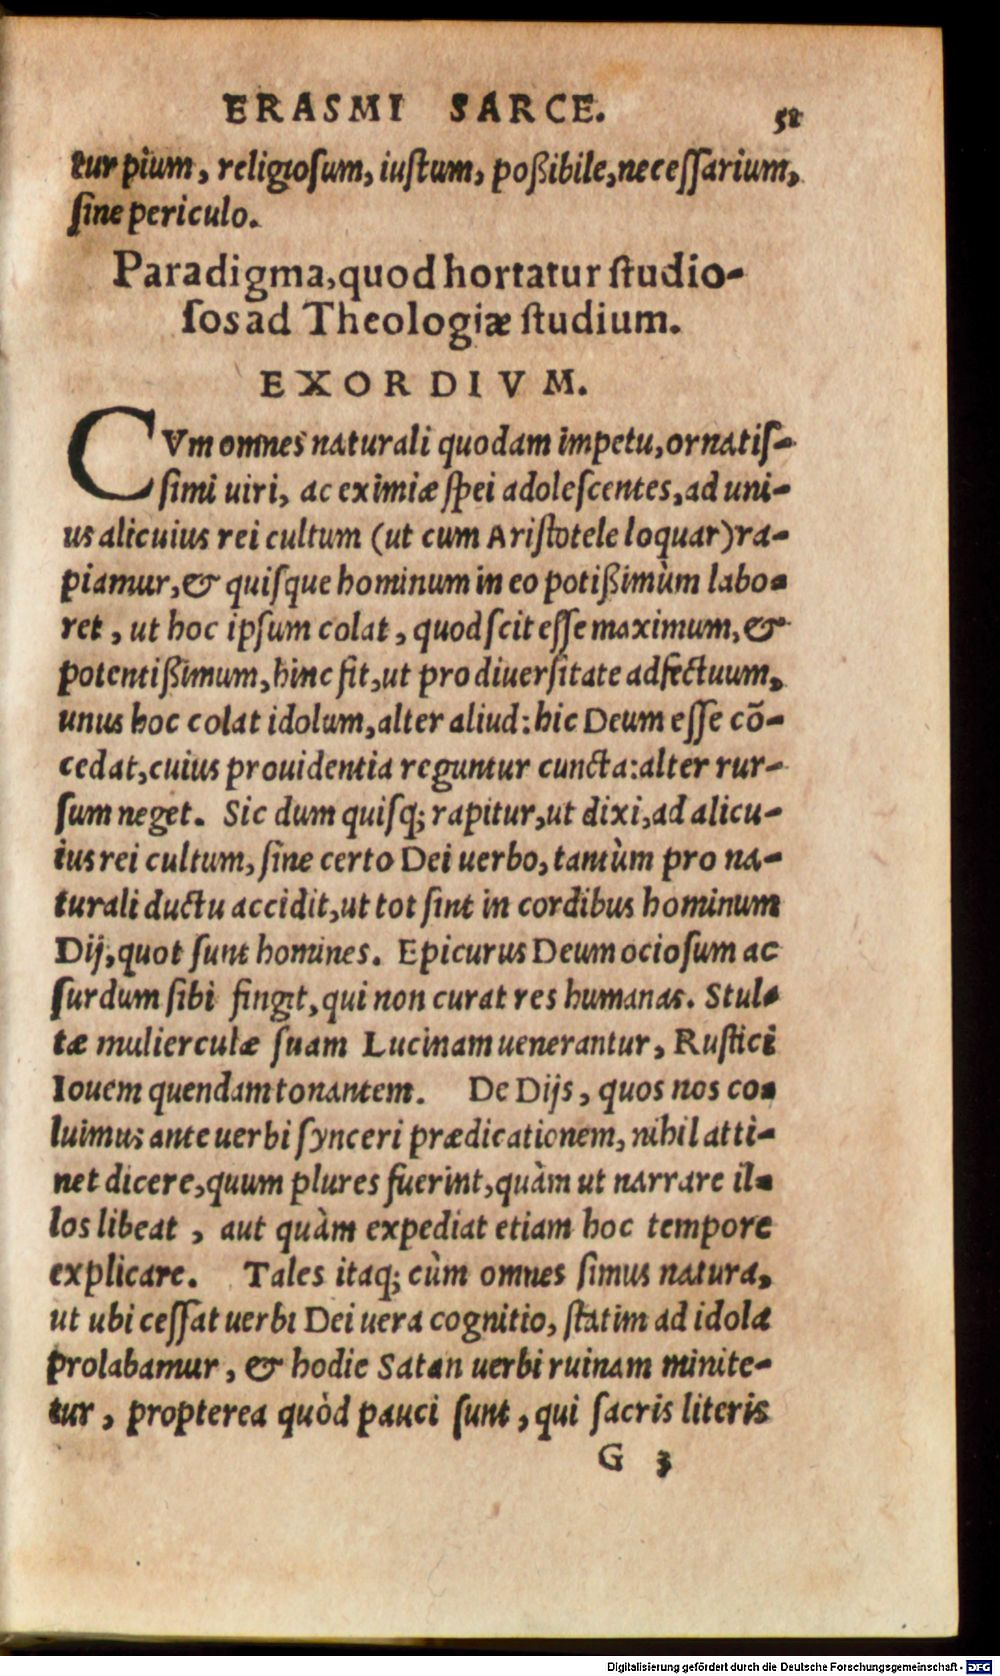 ERASMI SARCE. 51
tur pium, religioſum, iuſtum, poßibile, neceſſarium,
ſine periculo.
Paradigma, quod hortatur ſtudio-
ſos ad Theologiæ ſtudium.
EXORDIVM.
CVm omnes naturali quodam impetu, ornatiſ-
ſimi uiri, ac eximiæ ſpei adoleſcentes, ad uni-
us alicuius rei cultum (ut cum Ariſtotele loquar) ra-
piamur, & quiſque hominum in eo potißimùm labo-
ret, ut hoc ipſum colat, quod ſcit eſſe maximum, &
potentißimum, hinc fit, ut pro diuerſitate adfectuum,
unus hoc colat idolum, alter aliud: hic Deum eſſe cō-
cedat, cuius prouidentia reguntur cuncta: alter rur-
ſum neget. Sic dum quiſq; rapitur, ut dixi, ad alicu-
ius rei cultum, ſine certo Dei uerbo, tantùm pro na-
turali ductu accidit, ut tot ſint in cordibus hominum
Dij, quot ſunt homines. Epicurus Deum ocioſum ac
ſurdum ſibi fingit, qui non curat res humanas. Stul-
tæ mulierculæ ſuam Lucinam uenerantur, Ruſtici
Iouem quendam tonantem. De Dijs, quos nos co-
luimus ante uerbi ſynceri prædicationem, nihil atti-
net dicere, quum plures fuerint, quàm ut narrare il-
los libeat, aut quàm expediat etiam hoc tempore
explicare. Tales itaq; cùm omnes ſimus natura,
ut ubi ceſſat uerbi Dei uera cognitio, ſtatim ad idola
prolabamur, & hodie Satan uerbi ruinam minite-
tur, propterea quòd pauci ſunt, qui ſacris literis
G 3
Digitalisierung gefördert durch die Deutsche Forschungsgemeinschaft - DFG